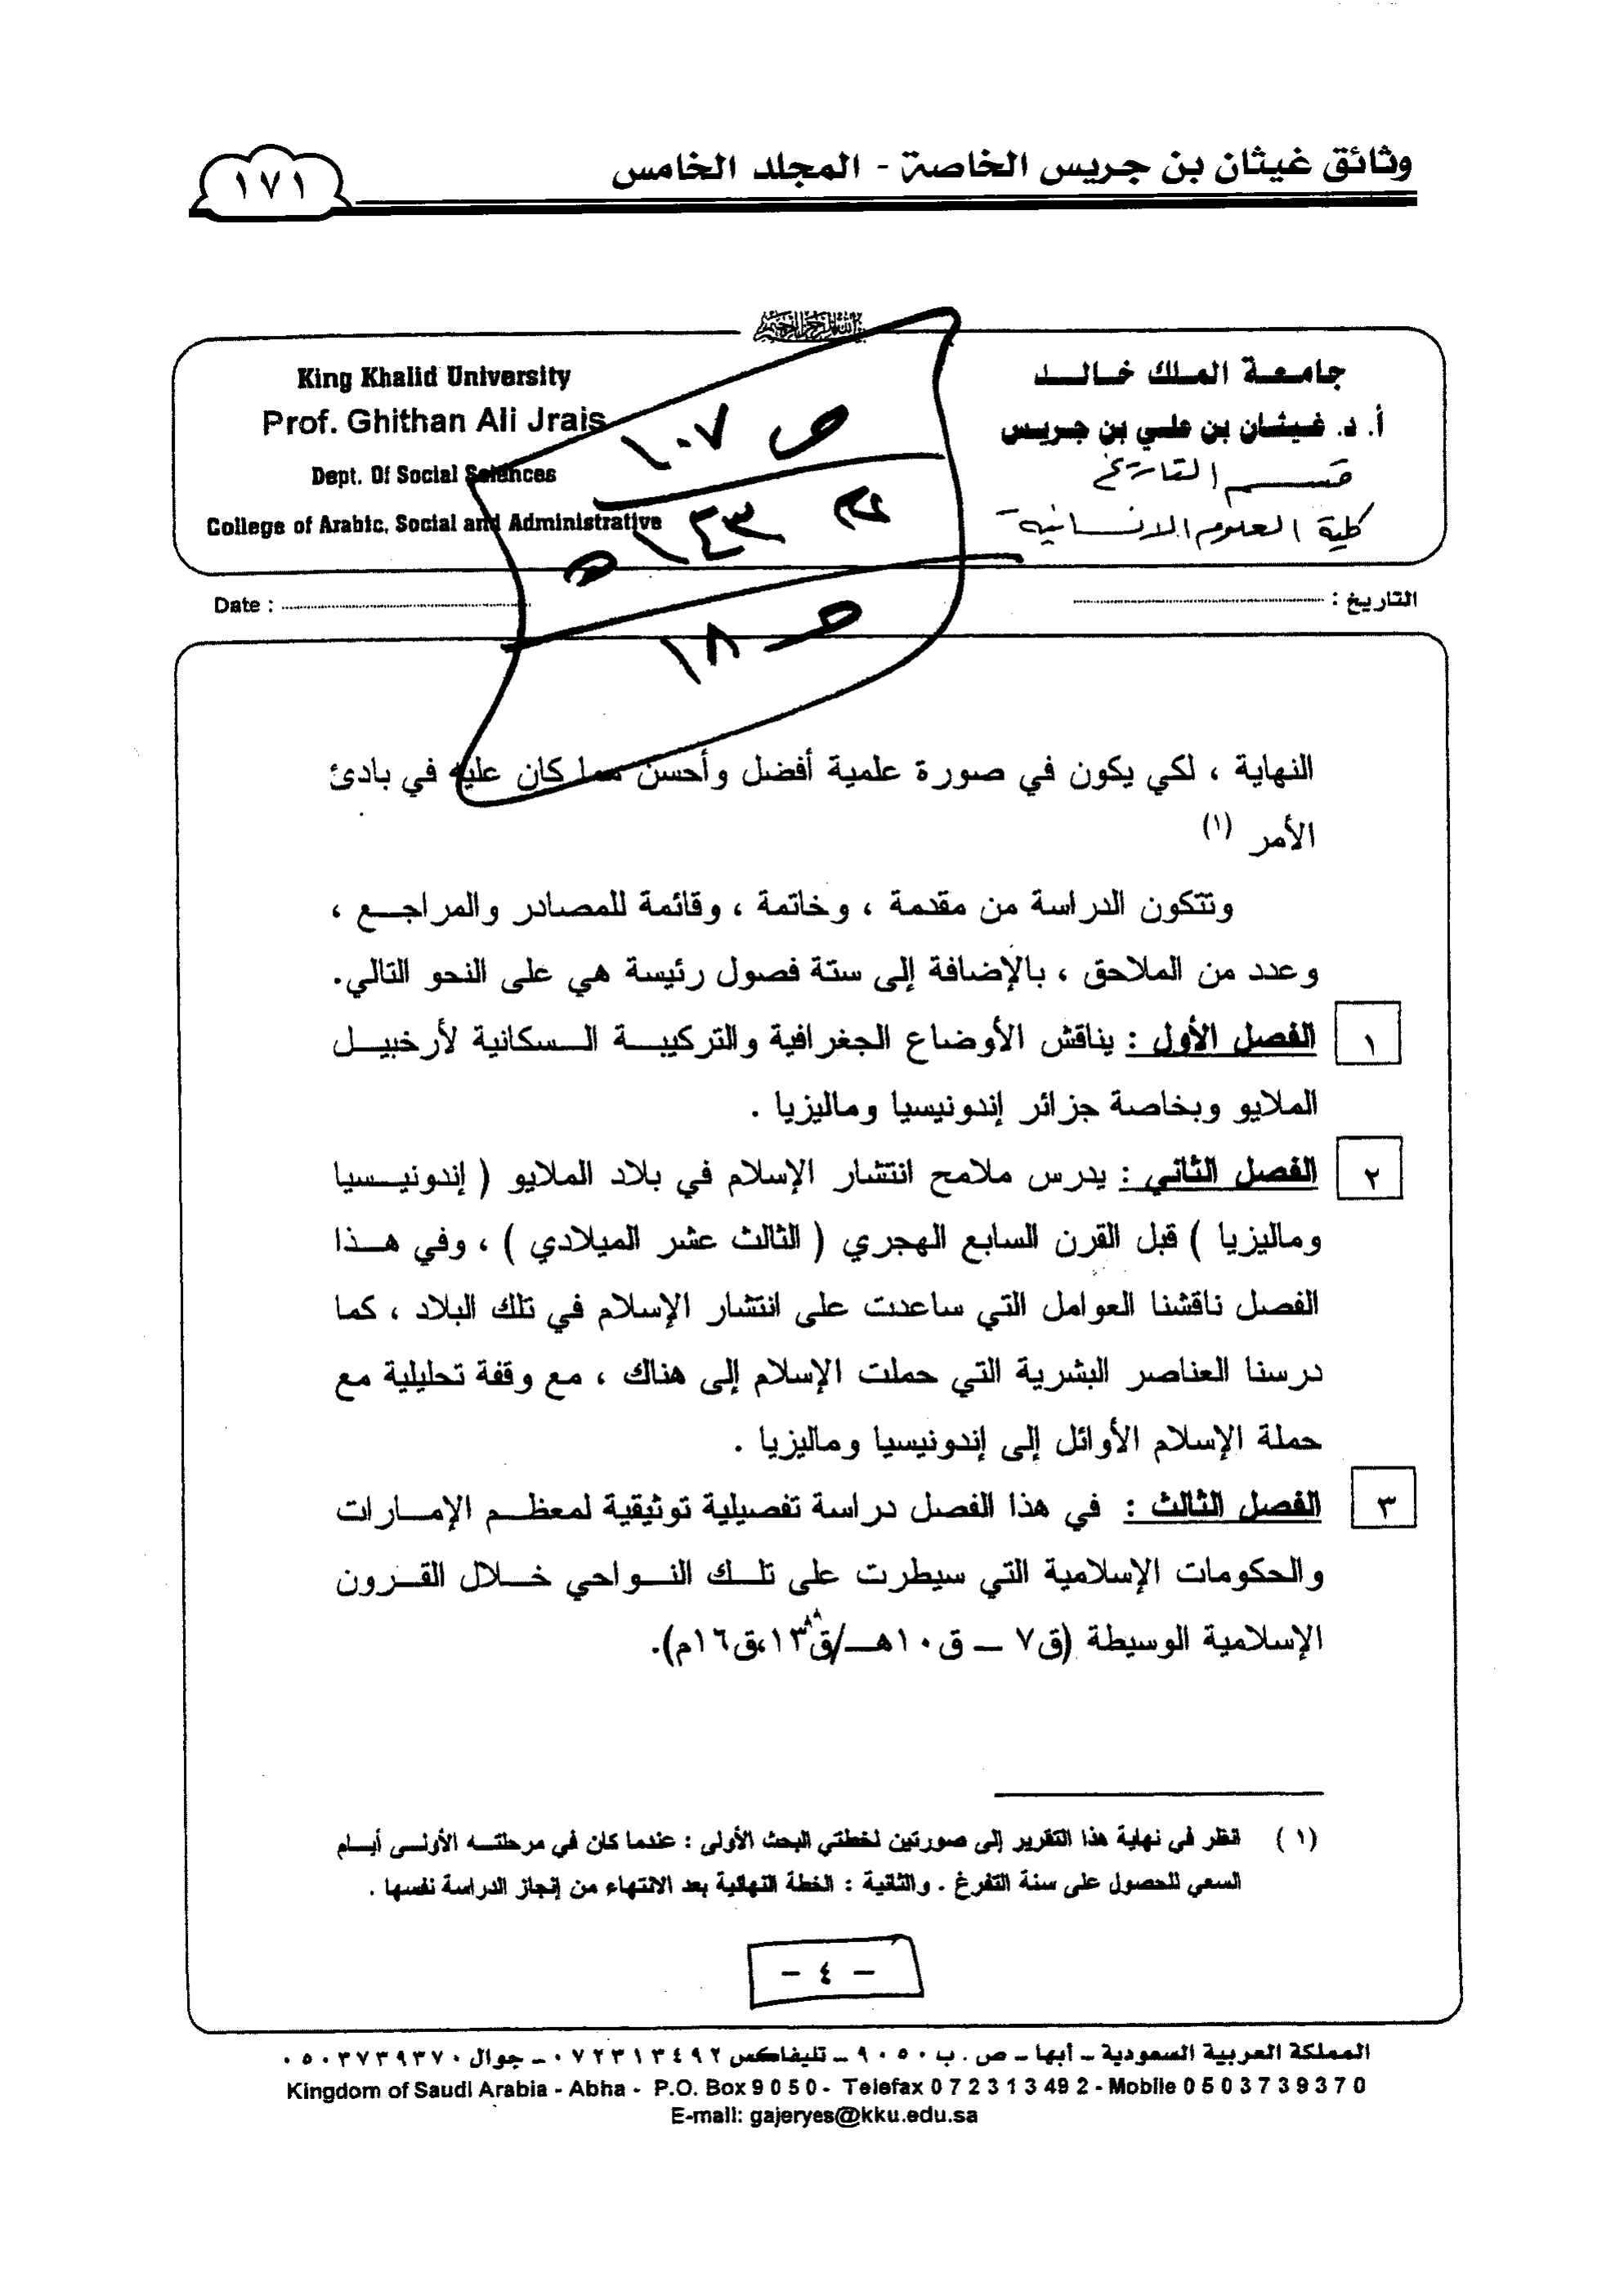 وثائق غيثان بن جريس الخاصة - المجلد الخامس
١٧١
بسم الله الرحمن الرحيم
جامعة الملك خالد
أ. د. غيثان بن علي بن جريس
قسم التاريخ
كلية العلوم الإنسانية
King Khalid University
Prof. Ghithan Ali Jrais
Dept. Of Social Sciences
College of Arabic, Social and Administrative
ص ١٠٧
١٤٣
ص ١٨
التاريخ : 
Date : 
النهاية ، لكي يكون في صورة علمية أفضل وأحسن مما كان عليه في بادئ
الأمر (١)
وتتكون الدراسة من مقدمة ، وخاتمة ، وقائمة للمصادر والمراجع ،
وعدد من الملاحق ، بالإضافة إلى ستة فصول رئيسة هي على النحو التالي.
١ الفصل الأول : يناقش الأوضاع الجغرافية والتركيبة السكانية لأرخبيل
الملايو وبخاصة جزائر إندونيسيا وماليزيا .
٢ الفصل الثاني : يدرس ملامح انتشار الإسلام في بلاد الملايو ( إندونيسيا
وماليزيا ) قبل القرن السابع الهجري ( الثالث عشر الميلادي ) ، وفي هذا
الفصل ناقشنا العوامل التي ساعدت على انتشار الإسلام في تلك البلاد ، كما
درسنا العناصر البشرية التي حملت الإسلام إلى هناك ، مع وقفة تحليلية مع
حملة الإسلام الأوائل إلى إندونيسيا وماليزيا .
٣ الفصل الثالث : في هذا الفصل دراسة تفصيلية توثيقية لمعظم الإمارات
والحكومات الإسلامية التي سيطرت على تلك النواحي خلال القرون
الإسلامية الوسيطة (ق٧ – ق١٠هـ/ق١٣،ق١٦م).
(١) انظر في نهاية هذا التقرير إلى صورتين لخطتي البحث الأولى : عندما كان في مرحلته الأولى أيام
السعي للحصول على سنة التفرغ . والثانية : الخطة النهائية بعد الانتهاء من إنجاز الدراسة نفسها .
- ٤ -
المملكة العربية السعودية – أبها – ص . ب ٩٠٥٠ – تليفاكس ٠٧٢٣١٣٤٩٢ – جوال ٠٥٠٣٧٣٩٣٧٠
Kingdom of Saudi Arabia - Abha - P.O. Box 9 0 5 0 - Telefax 0 7 2 3 1 3 49 2 - Mobile 0 5 0 3 7 3 9 3 7 0
E-mail: gajeryes@kku.edu.sa